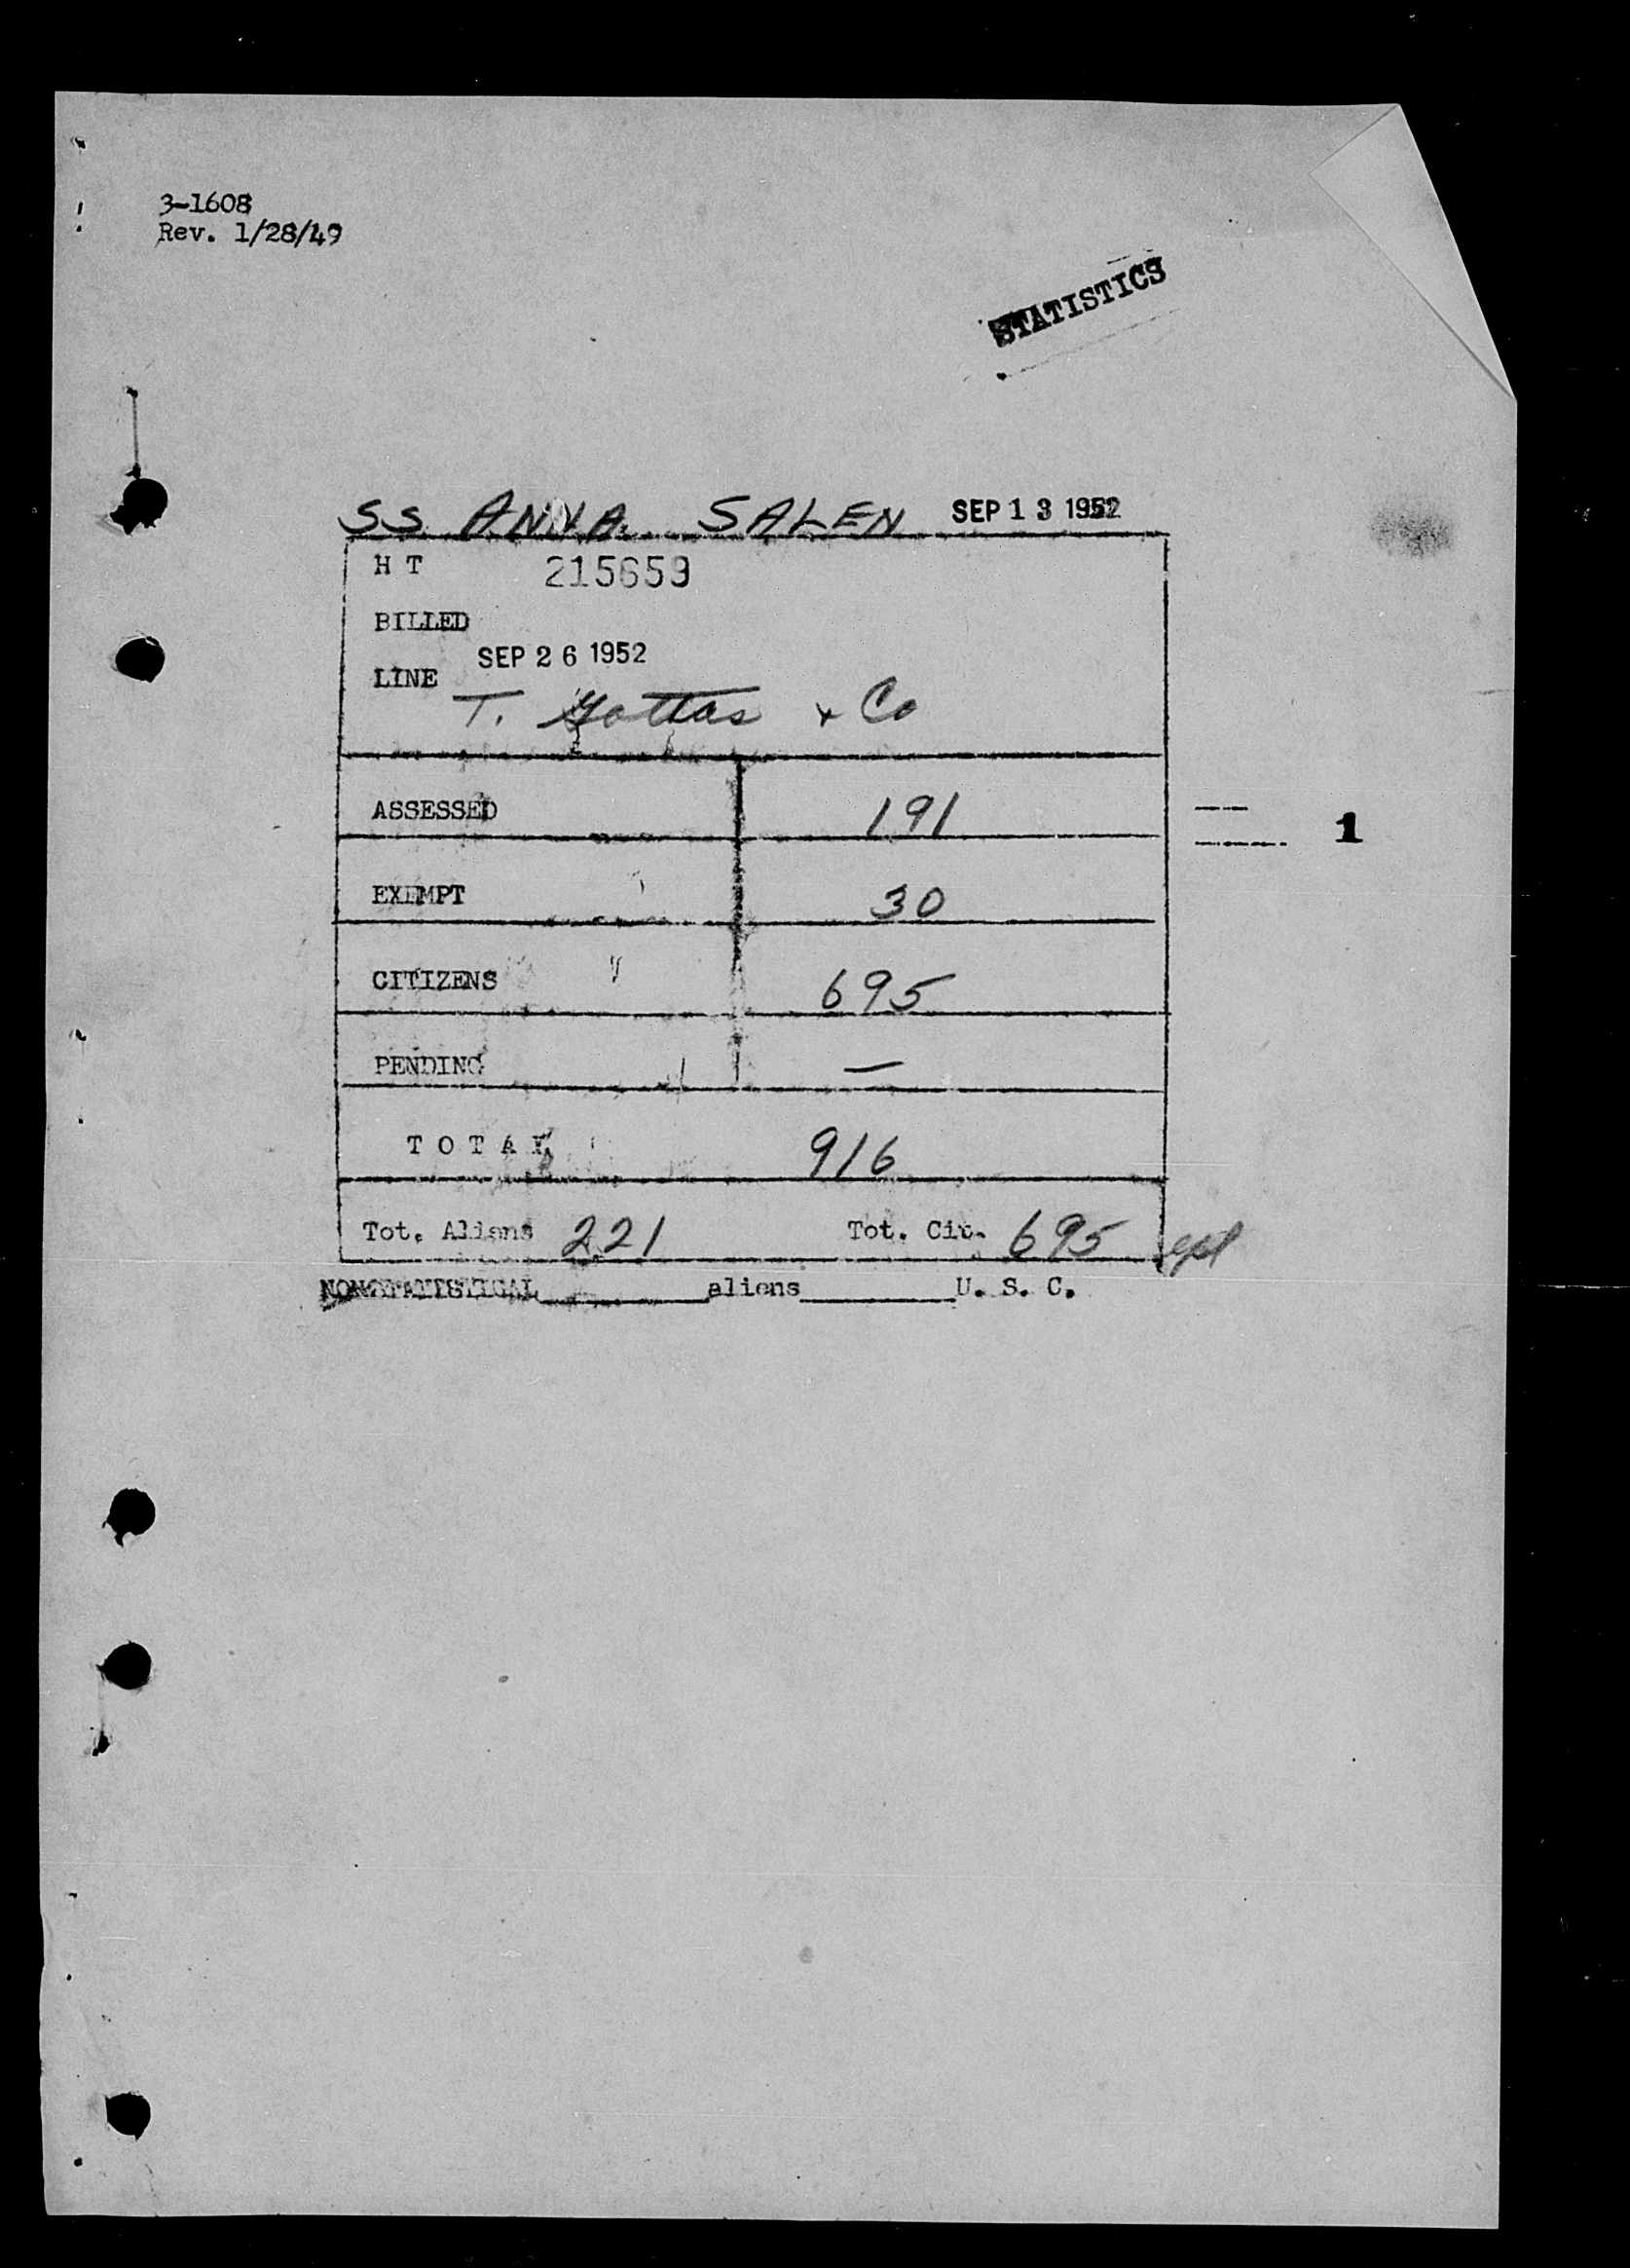 3-1608
Rev. 1/28/49
STATISTICS
SS ANNA SALEN SEP 13 1952
H T 215659
BILLED
SEP 26 1952
LINE
T. & Co
ASSESSED 191
1
EXEMPT 30
CITIZENS 695
PENDING —
TOTAL 916
Tot. Aliens 221 Tot. Cit. 695
NONSTATISTICAL________aliens________U. S. C.